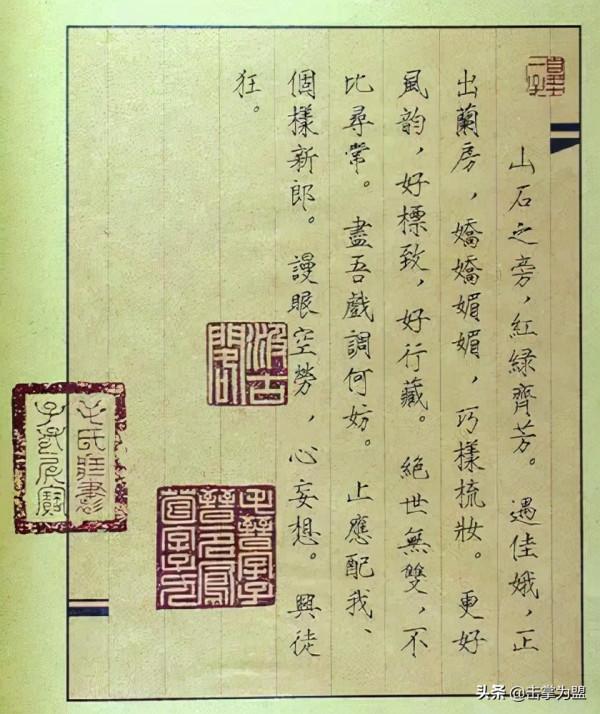 山石之旁，紅綠齊芳。遇佳娥，正
出蘭房，嬌嬌媚媚，巧樣梳妝。更好
風韵，好標致，好行藏。絕世無雙，不
比尋常。盡吾戲調何妨。止應配我、
個樣新郎。謾眼空勞，心妄想。興徒
狂。
头条 @击掌为盟